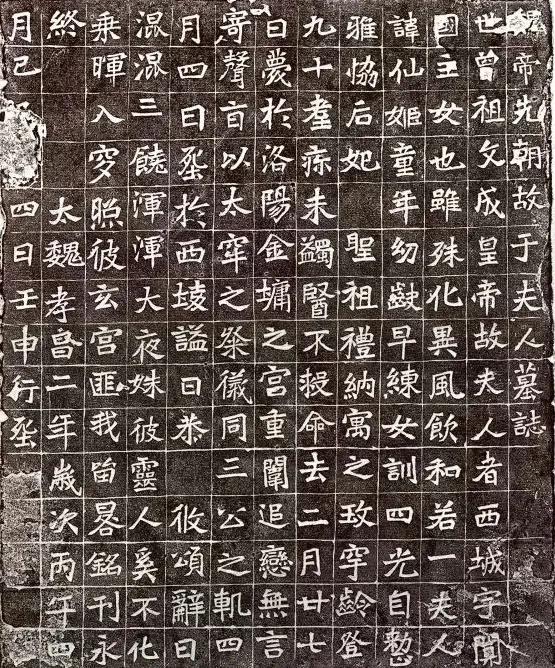 魏帝先朝故于夫人墓誌
世曾祖文成皇帝故夫人者西城宇闐
國主女也雖殊化異風飲和若一夫人
諱仙姬童年幼齔早練女訓四光自整
雅協后妃聖祖禮納寓之玫宇齡登
九十耋痳未蠲醫不救命去二月廿七
日薨於洛陽金墉之宮重闈追戀無言
寄聲旨以太牢之祭儀同三公之軌四
月四日葬於西陵謚曰恭攸頌辭曰
混混三饒渾渾大夜姝彼靈人奚不化
乘暉入穸照彼玄宮匪我留晷銘刊永
終太魏孝昌二年歲次丙午四
月己四日壬申行葬